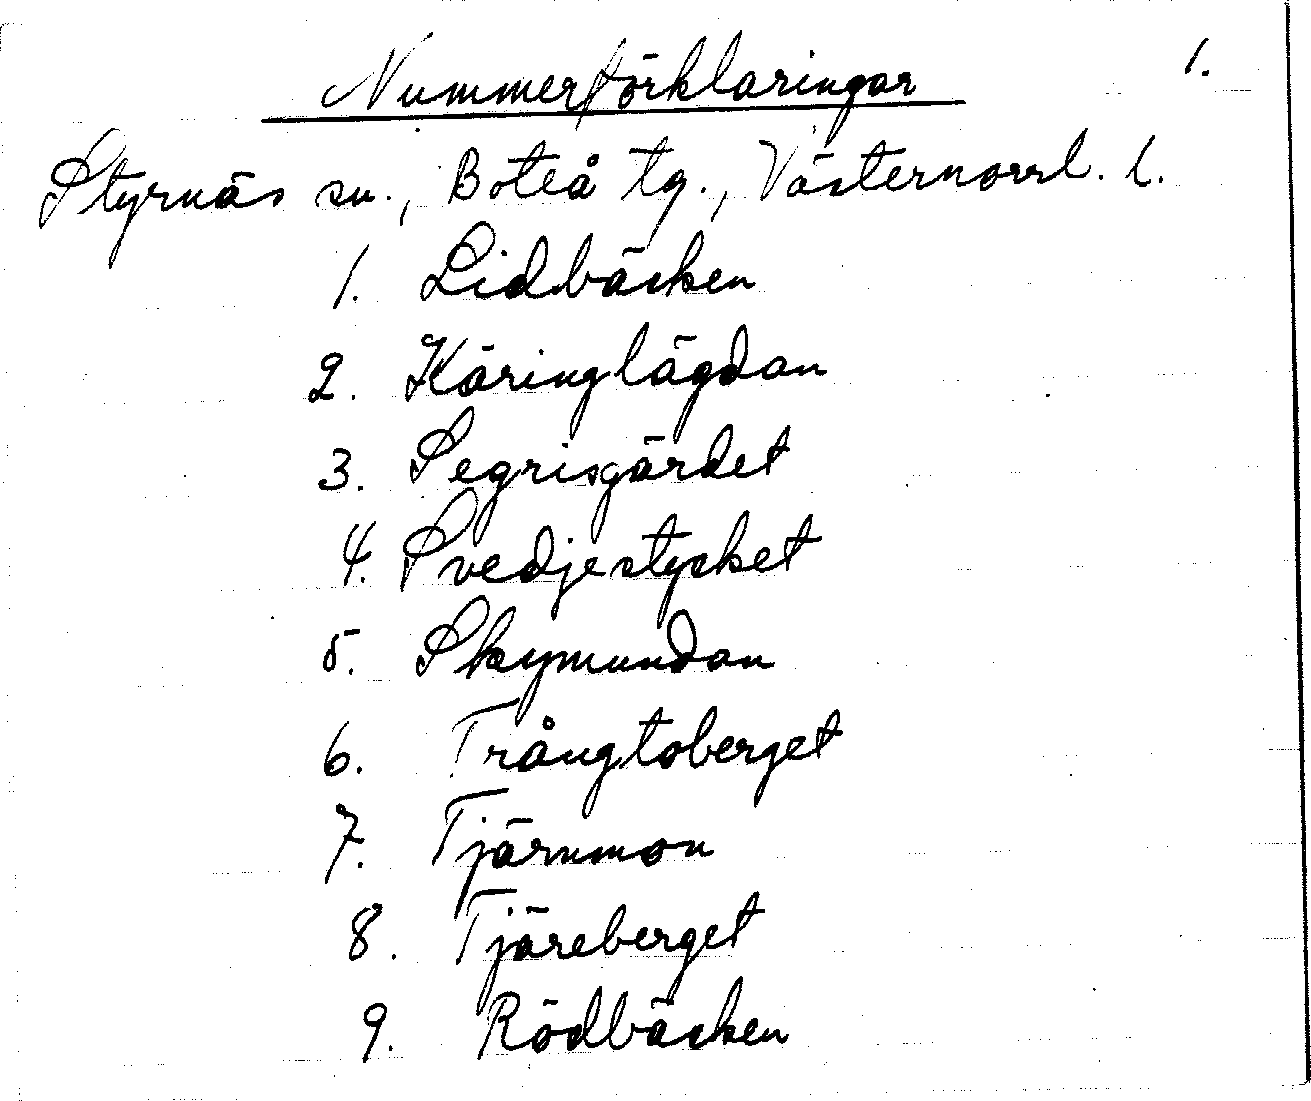 Nummerförklaringar 1.
Styrnäs sn., Boteå tg., Västernorrl. l.
1. Lidbäcken
2. Käringlägdan
3. Segrisgärdet
4. Svedjestycket
5. Skymundan
6. Trångtoberget
7. Tjärnmon
8. Tjäreberget
9. Rödbäcken